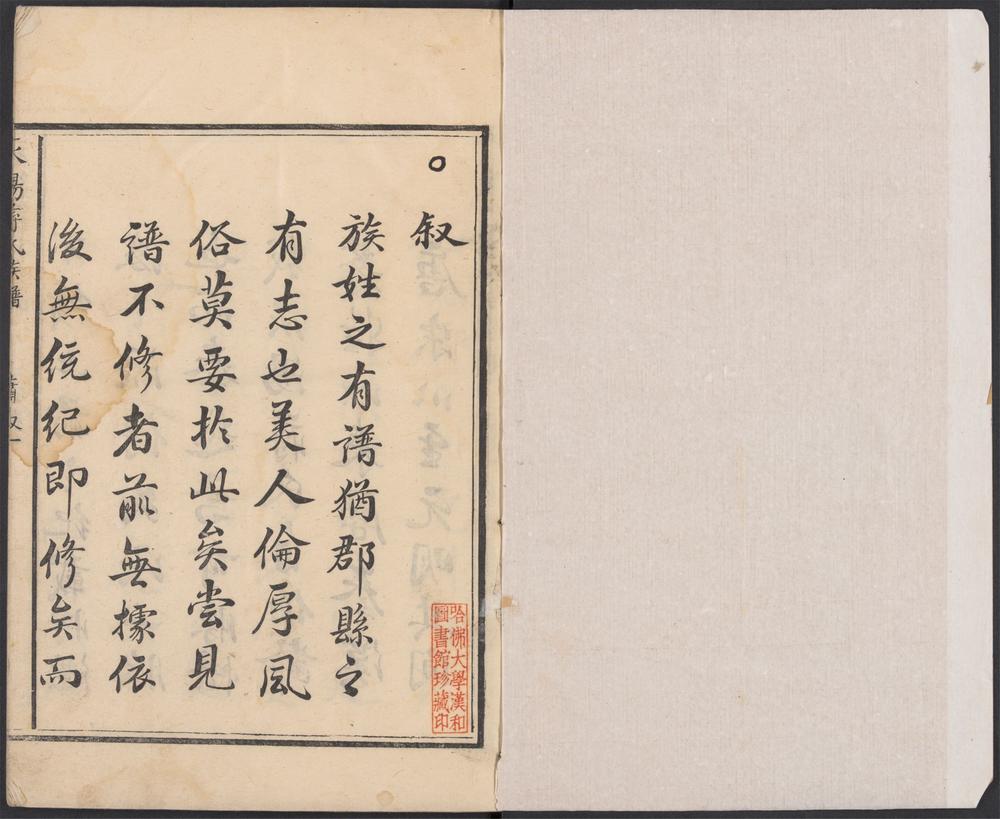 叙
族姓之有譜猶郡縣之
有志也美人倫厚風
俗莫要於此矣嘗見
譜不修者前無據依
後無統紀即修矣而
氏族譜
哈佛大學漢和
圖書館珍藏印